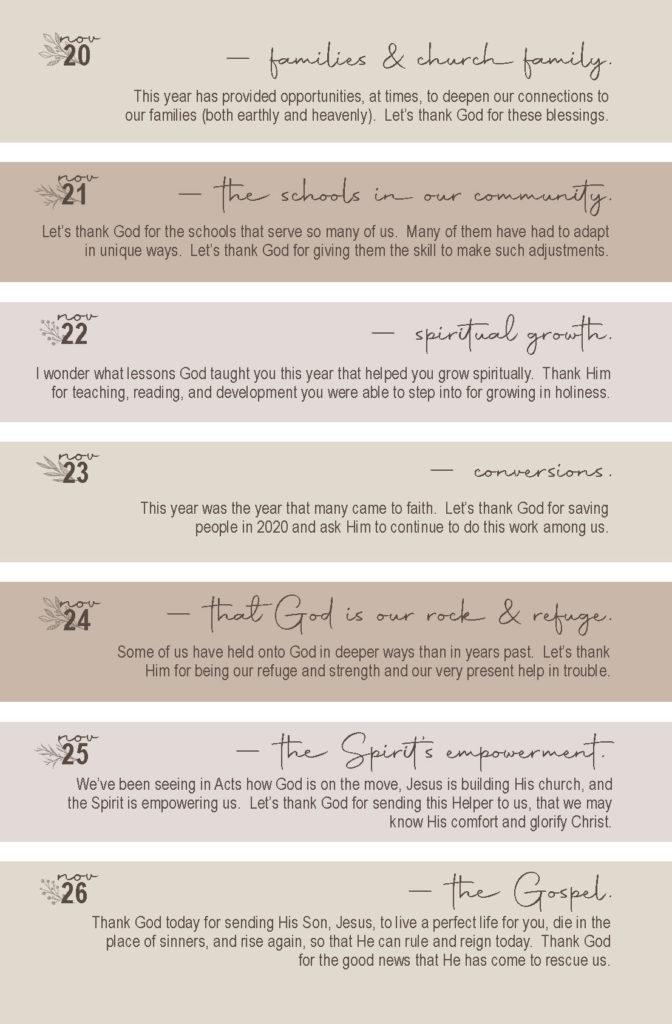 nov
20
— families & church family.
This year has provided opportunities, at times, to deepen our connections to
our families (both earthly and heavenly).  Let's thank God for these blessings.
nov
21
— the schools in our community.
Let's thank God for the schools that serve so many of us.  Many of them have had to adapt
in unique ways.  Let's thank God for giving them the skill to make such adjustments.
nov
22
— spiritual growth.
I wonder what lessons God taught you this year that helped you grow spiritually.  Thank Him
for teaching, reading, and development you were able to step into for growing in holiness.
nov
23
— conversions.
This year was the year that many came to faith.  Let's thank God for saving
people in 2020 and ask Him to continue to do this work among us.
nov
24
— that God is our rock & refuge.
Some of us have held onto God in deeper ways than in years past.  Let's thank
Him for being our refuge and strength and our very present help in trouble.
nov
25
— the Spirit's empowerment.
We've been seeing in Acts how God is on the move, Jesus is building His church, and
the Spirit is empowering us.  Let's thank God for sending this Helper to us, that we may
know His comfort and glorify Christ.
nov
26
— the Gospel.
Thank God today for sending His Son, Jesus, to live a perfect life for you, die in the
place of sinners, and rise again, so that He can rule and reign today.  Thank God
for the good news that He has come to rescue us.